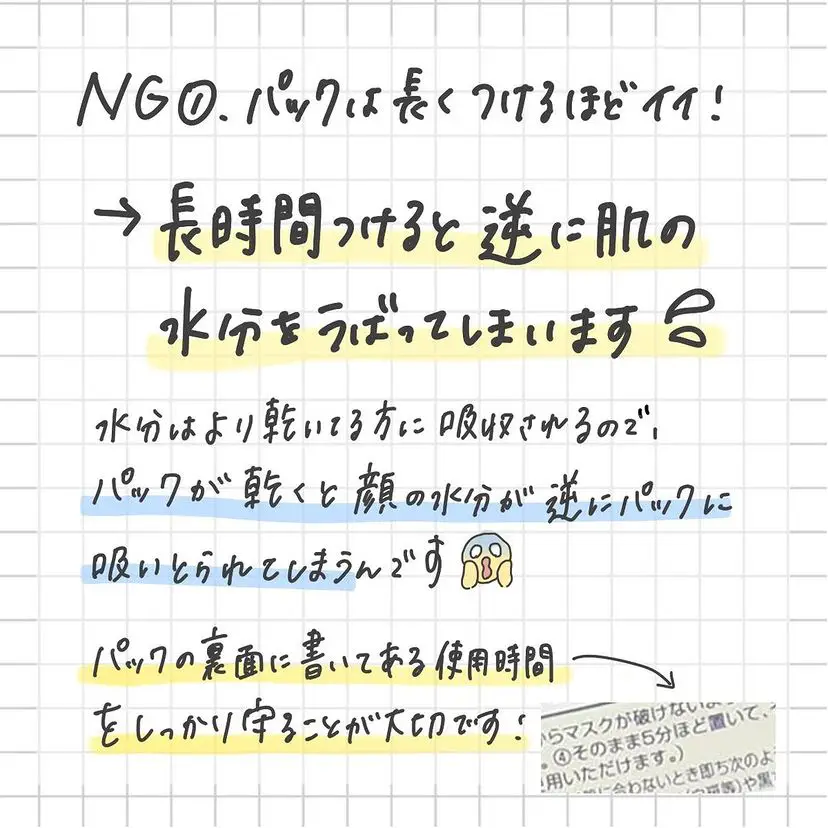 NG①.パックは長くつけるほどイイ!
→ 長時間つけると逆に肌の
水分をうばってしまいます
水分はより乾いてる方に吸収されるので、
パックが乾くと顔の水分が逆にパックに
吸いとられてしまうんです
パックの裏面に書いてある使用時間
をしっかり守ることが大切です!
らマスクが破けないよ
。④そのまま5分ほど置いて、
用いただけます。)
に合わないとき即ち次のよ
や黒